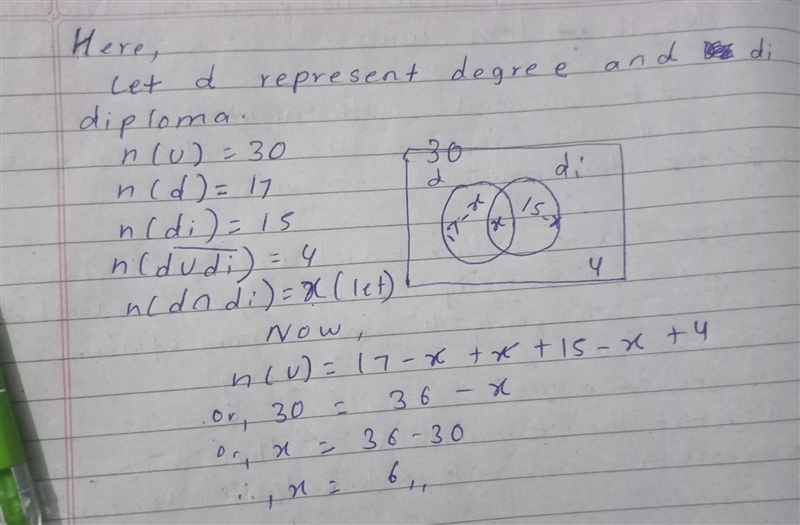 Here,
Let d represent degree and di
diploma.
n(U) = 30
n(d) = 17
n(di) = 15
n(d∪di)̅ = 4
n(d∩di) = x (let)
30
d di
17-x x 15-x
4
Now,
n(U) = 17 - x + x + 15 - x + 4
or, 30 = 36 - x
or, x = 36 - 30
∴, x = 6,,